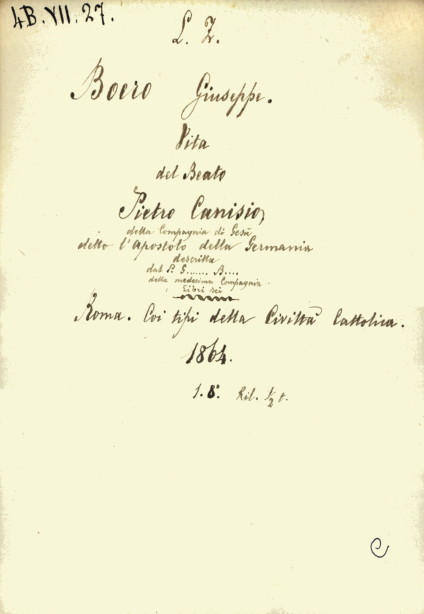 4B.VII.27.
L. Z.
Boero Giuseppe.
Vita
del Beato
Pietro Canisio,
della Compagnia di Gesù,
detto l'apostolo della Germania
descritta
dal P. G....... B....
della medesima Compagnia.
Libri sei
Roma. Coi tipi della Civiltà Cattolica.
1864.
1. 8°. Ril. ½ t.
C